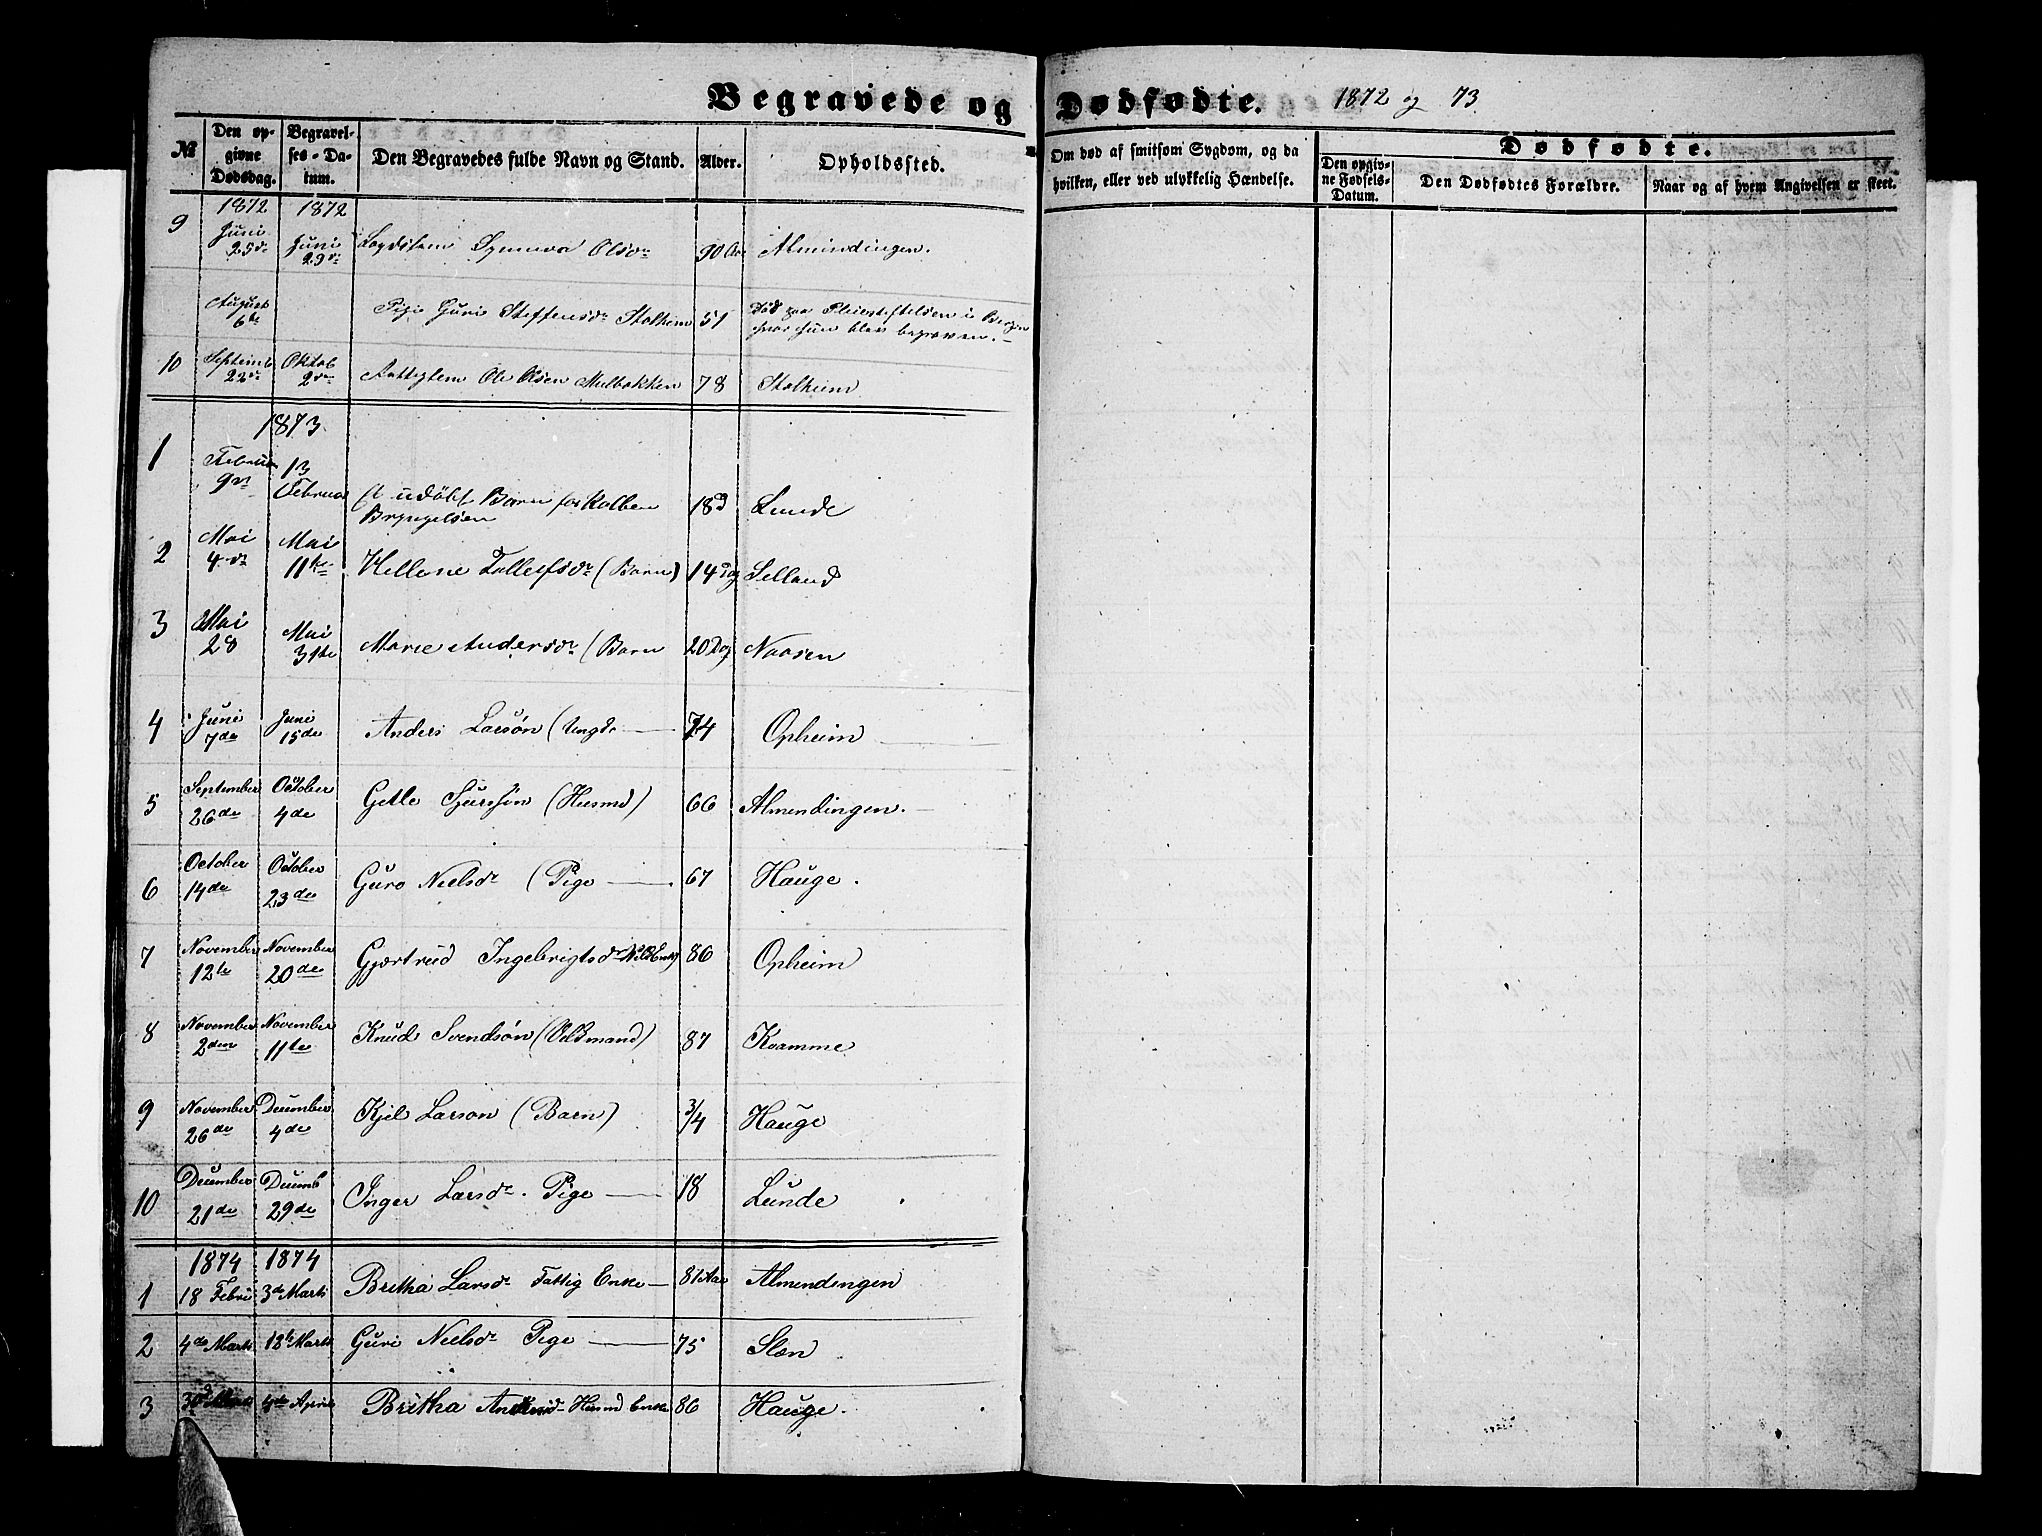 Begravede og Dødfødte. 1872 og 73.
№ Den opgivne Dødsdag. Begravelses-Datum. Den Begravedes fulde Navn og Stand. Alder. Opholdssted. Om død af smitsom Sygdom, og da hvilken, eller ved ulykkelig Hændelse. Dødfødte. Den opgivne Fødsels-Datum. Den Dødfødtes Forældre. Naar og af hvem Angivelsen er skeet.
1872 1872
9 Juni 25de Juni 29de Synneva Olsdr 90 Aar Almindingen.
August 6te Pige Guri Steffensdr Stalheim 51 Død paa Pleiestiftelsen i Bergen hvor hun blev begraven.
10 Septemb 22de Oktob 2den Ole Olsen Mulbakken 78 Stalheim
1873
1 Februar 9de 13 Februar et udøbt Barn for Kolben Bryngelsen 18 d Lunde
2 Mai 4de Mai 11te Hellene Tollefsdr (Barn) 14 Dg Selland
3 Mai 28 Mai 31te Marie Andersdr (Barn 20 Dg Naasen
4 Juni 7de Juni 15de Anders Larsøn (Ungd. 74 Opheim
5 September 26de October 4de Getle Sjursøn (Husmd) 66 Almendingen.
6 October 14de October 23de Guro Nielsdr (Pige 67 Hauge.
7 November 12te November 20de Gjærtrud Ingebrigtsdr 86 Opheim
8 November 2den November 11te Knud Svendsøn (Vilkmand) 87 Kvamme
9 November 26de December 4de Kjel Larson (Barn) 3/4 Hauge
10 December 21de Decemb 29de Inger Larsdr. Pige 18 Lunde
1874 1874
1 18 Febru 3de Marts Britha Larsdr Fattig Enke 81 Aar Almendingen
2 4de Marts 13te Marts Guri Nielsdr Pige 75 Slæn
3 30 4de April Britha Husmd Enke 86 Hauge.